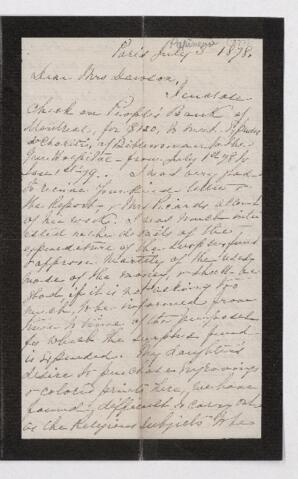 Papineau
Paris July 3 1878.
Dear Mrs Dawson,
I enclose
Check on People's Bank of
Montreal, for $120, to meet
& Charity, of Biblewoman to the
Gen Hospital - from July 1st 78 to
Jan 1st 79. I was very glad
to receive your kind letter &
the Report, & Mrs account
of his work. I was much inter
ested in the details of the
expenditure of the surplus fund
& approve heartily of the uses
made of the money, & should be
glad if it is not asking too
much, to be informed from
time to time of the purposes
for which the surplus fund
is expended. My daughter's
desire to purchase engravings
& colored prints here, we have
found difficult to carry out
as the Religious subjects